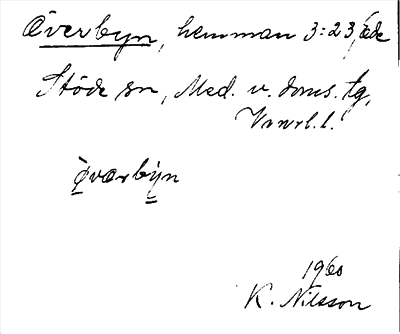 Överbyn, hemman 3:23, öde
Stöde sn, Med. v. doms. tg,
Vnrl. l.
Øværby̤n
1960
K. Nilsson